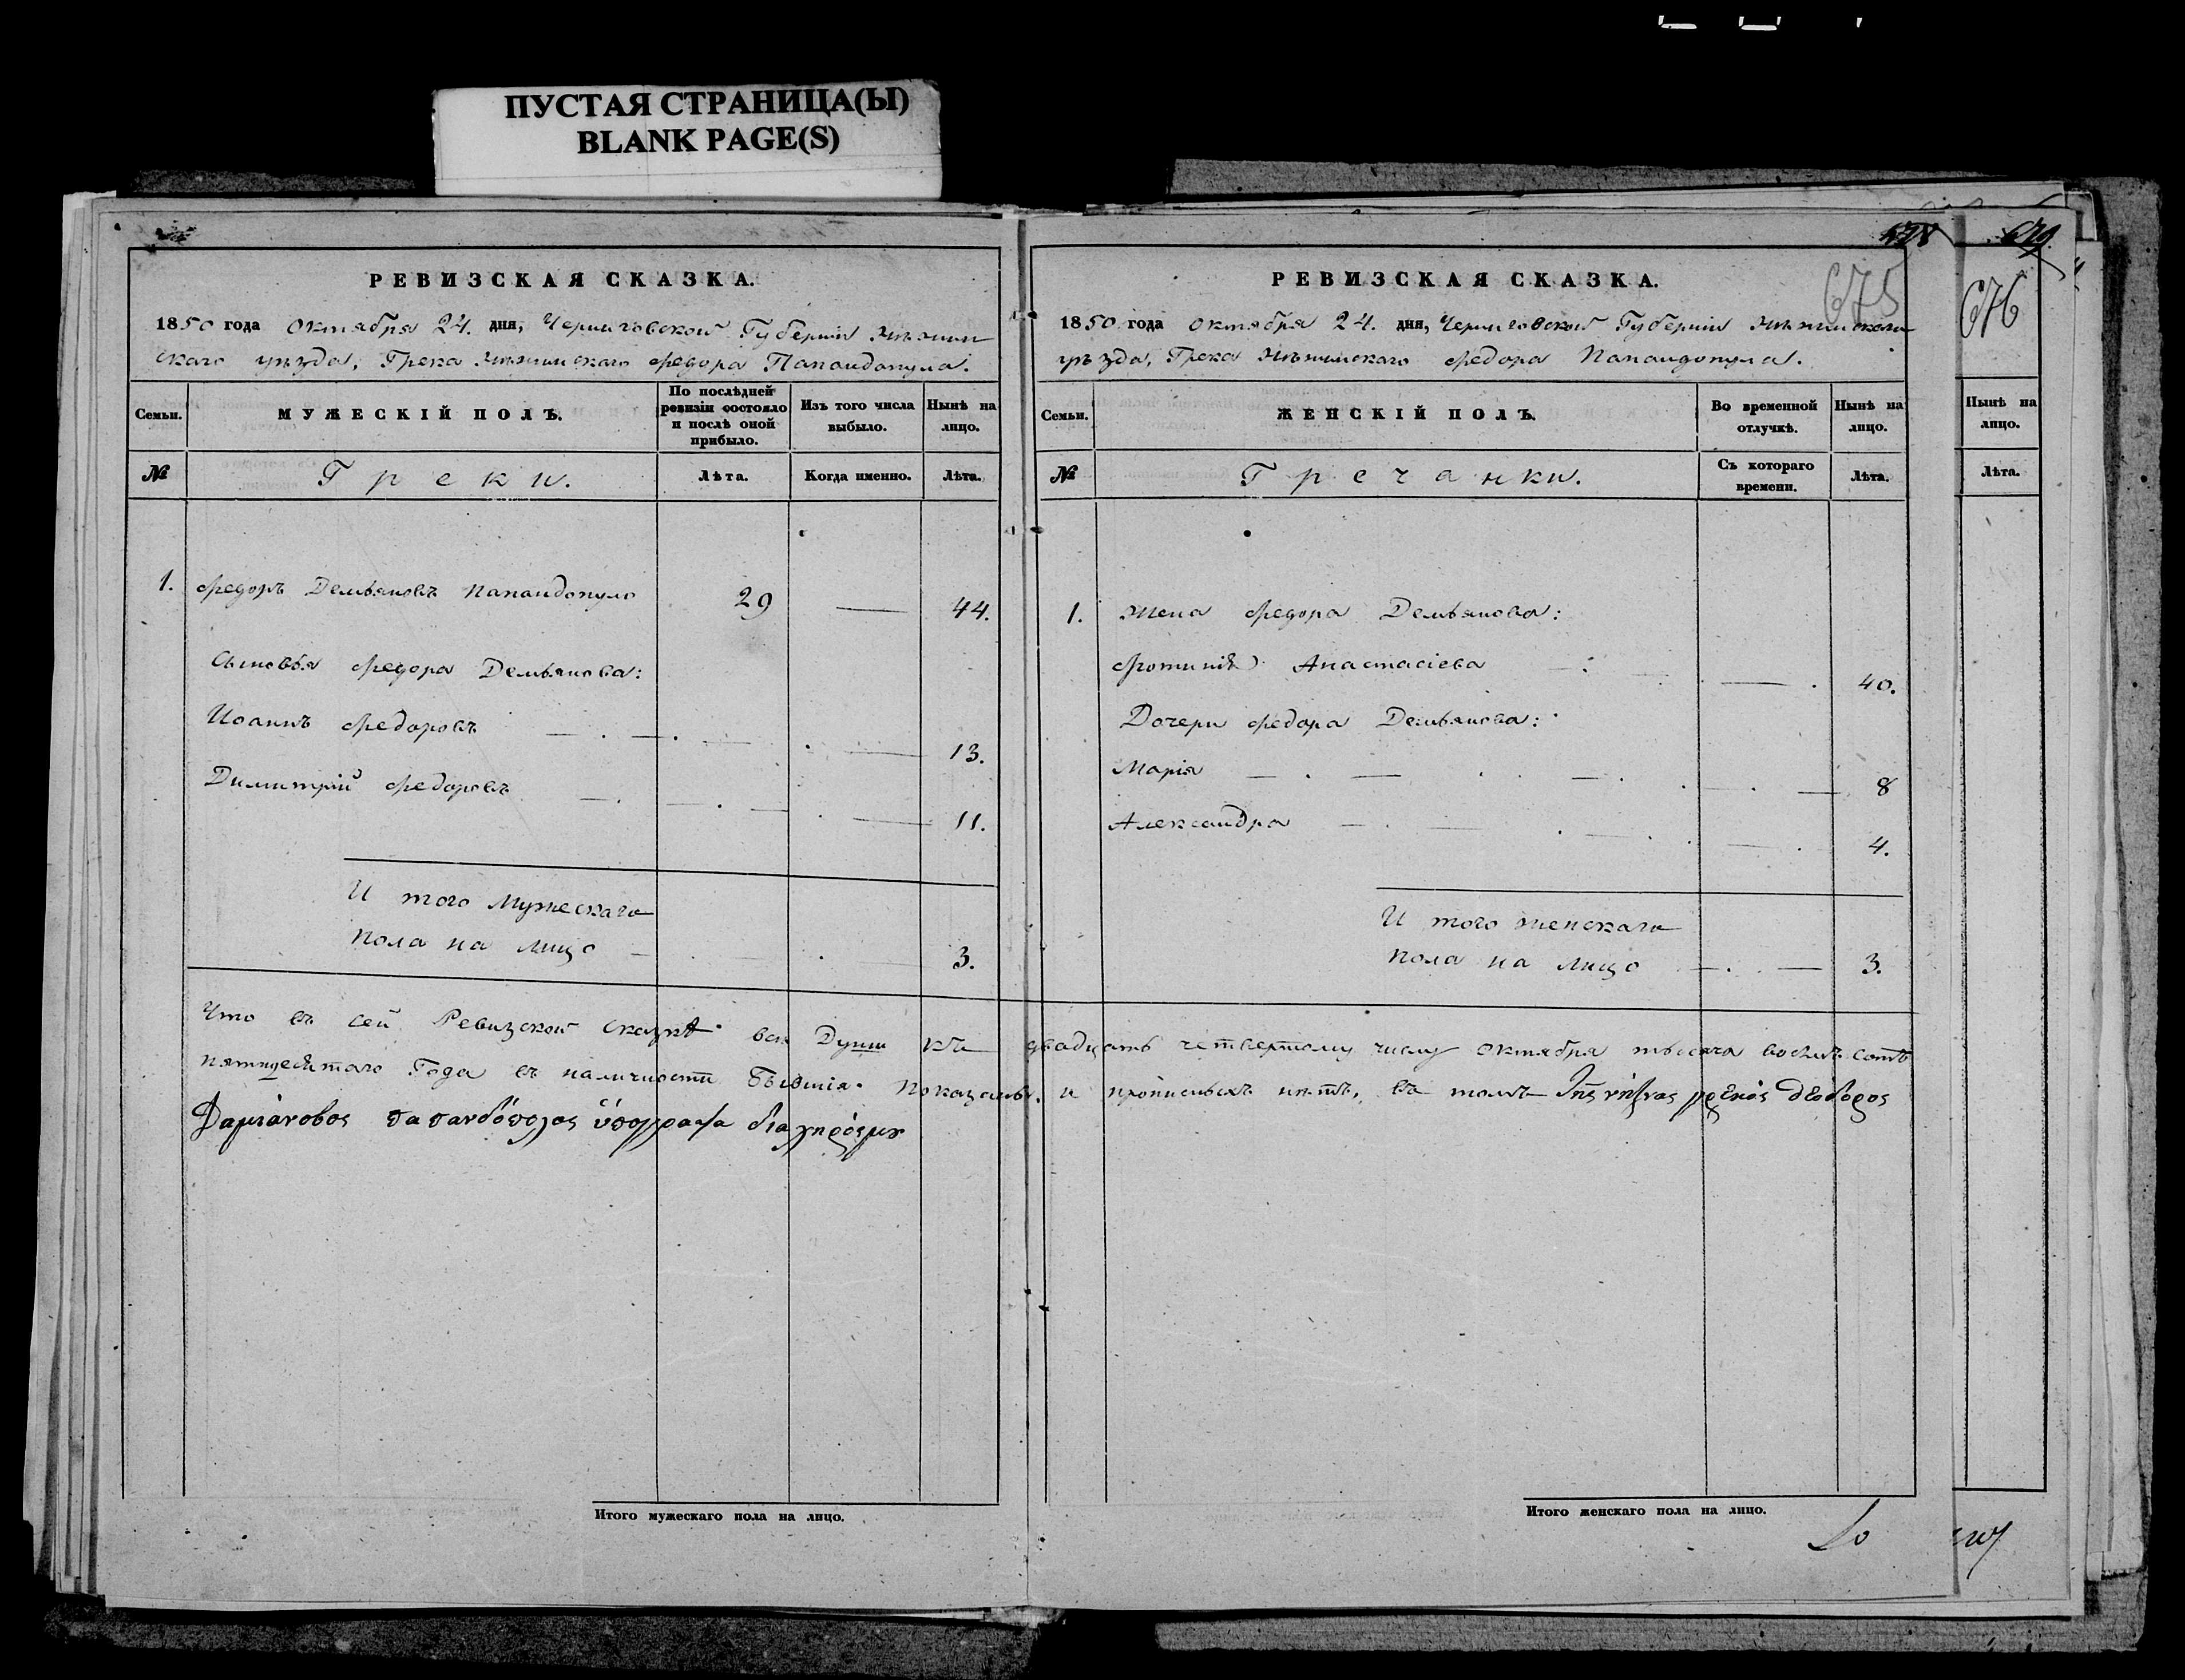 ПУСТАЯ СТРАНИЦА(Ы)
BLANK PAGE(S)
РЕВИЗСКАЯ СКАЗКА.
1850 года октября 24. дня, Черниговской Губерніи Нѣжин
скаго уѣзда, Грека Нѣжинскаго Федора Папандопула.
Семьи.
МУЖЕСКІЙ ПОЛЪ.
По послѣдней ревизіи состояло и послѣ оной прибыло.
Изъ того числа выбыло.
Нынѣ на лицо.
№
Греки.
Лѣта.
Когда именно.
Лѣта.
1. Федоръ Демьяновъ Папандопуло 29 — 44.
Сыновья Федора Демьянова:
Иоаннъ Федоровъ 13.
Димитрій Федоровъ 11.
И того Мужескаго
пола на лицо 3.
675
РЕВИЗСКАЯ СКАЗКА.
1850 года октября 24. дня, Черниговской Губерніи Нѣжинскаго
уѣзда, Грека Нѣжинскаго Федора Папандопула.
Семьи.
ЖЕНСКІЙ ПОЛЪ.
Во временной отлучкѣ.
Нынѣ на лицо.
№
Гречанки.
Съ котораго времени.
Лѣта.
1. Жена Федора Демьянова:
Фотинія Анастасіева 40.
Дочери Федора Демьянова:
Марія 8
Александра 4.
И того женскаго
пола на лицо 3.
Что въ сей Ревизской сказкѣ всѣ Души къ двадцать четвертому числу октября тысяча восемь сотъ
пятидесятаго Года въ наличности бывшія показаны, и прописныхъ нѣтъ, въ томъ Της νήζνας γρεκός θεόδορος
Δαμιάνοβος παπανδόπολος ὑπογράψα
Итого мужескаго пола на лицо.
Итого женскаго пола на лицо.
679
676
Нынѣ на лицо.
Лѣта.